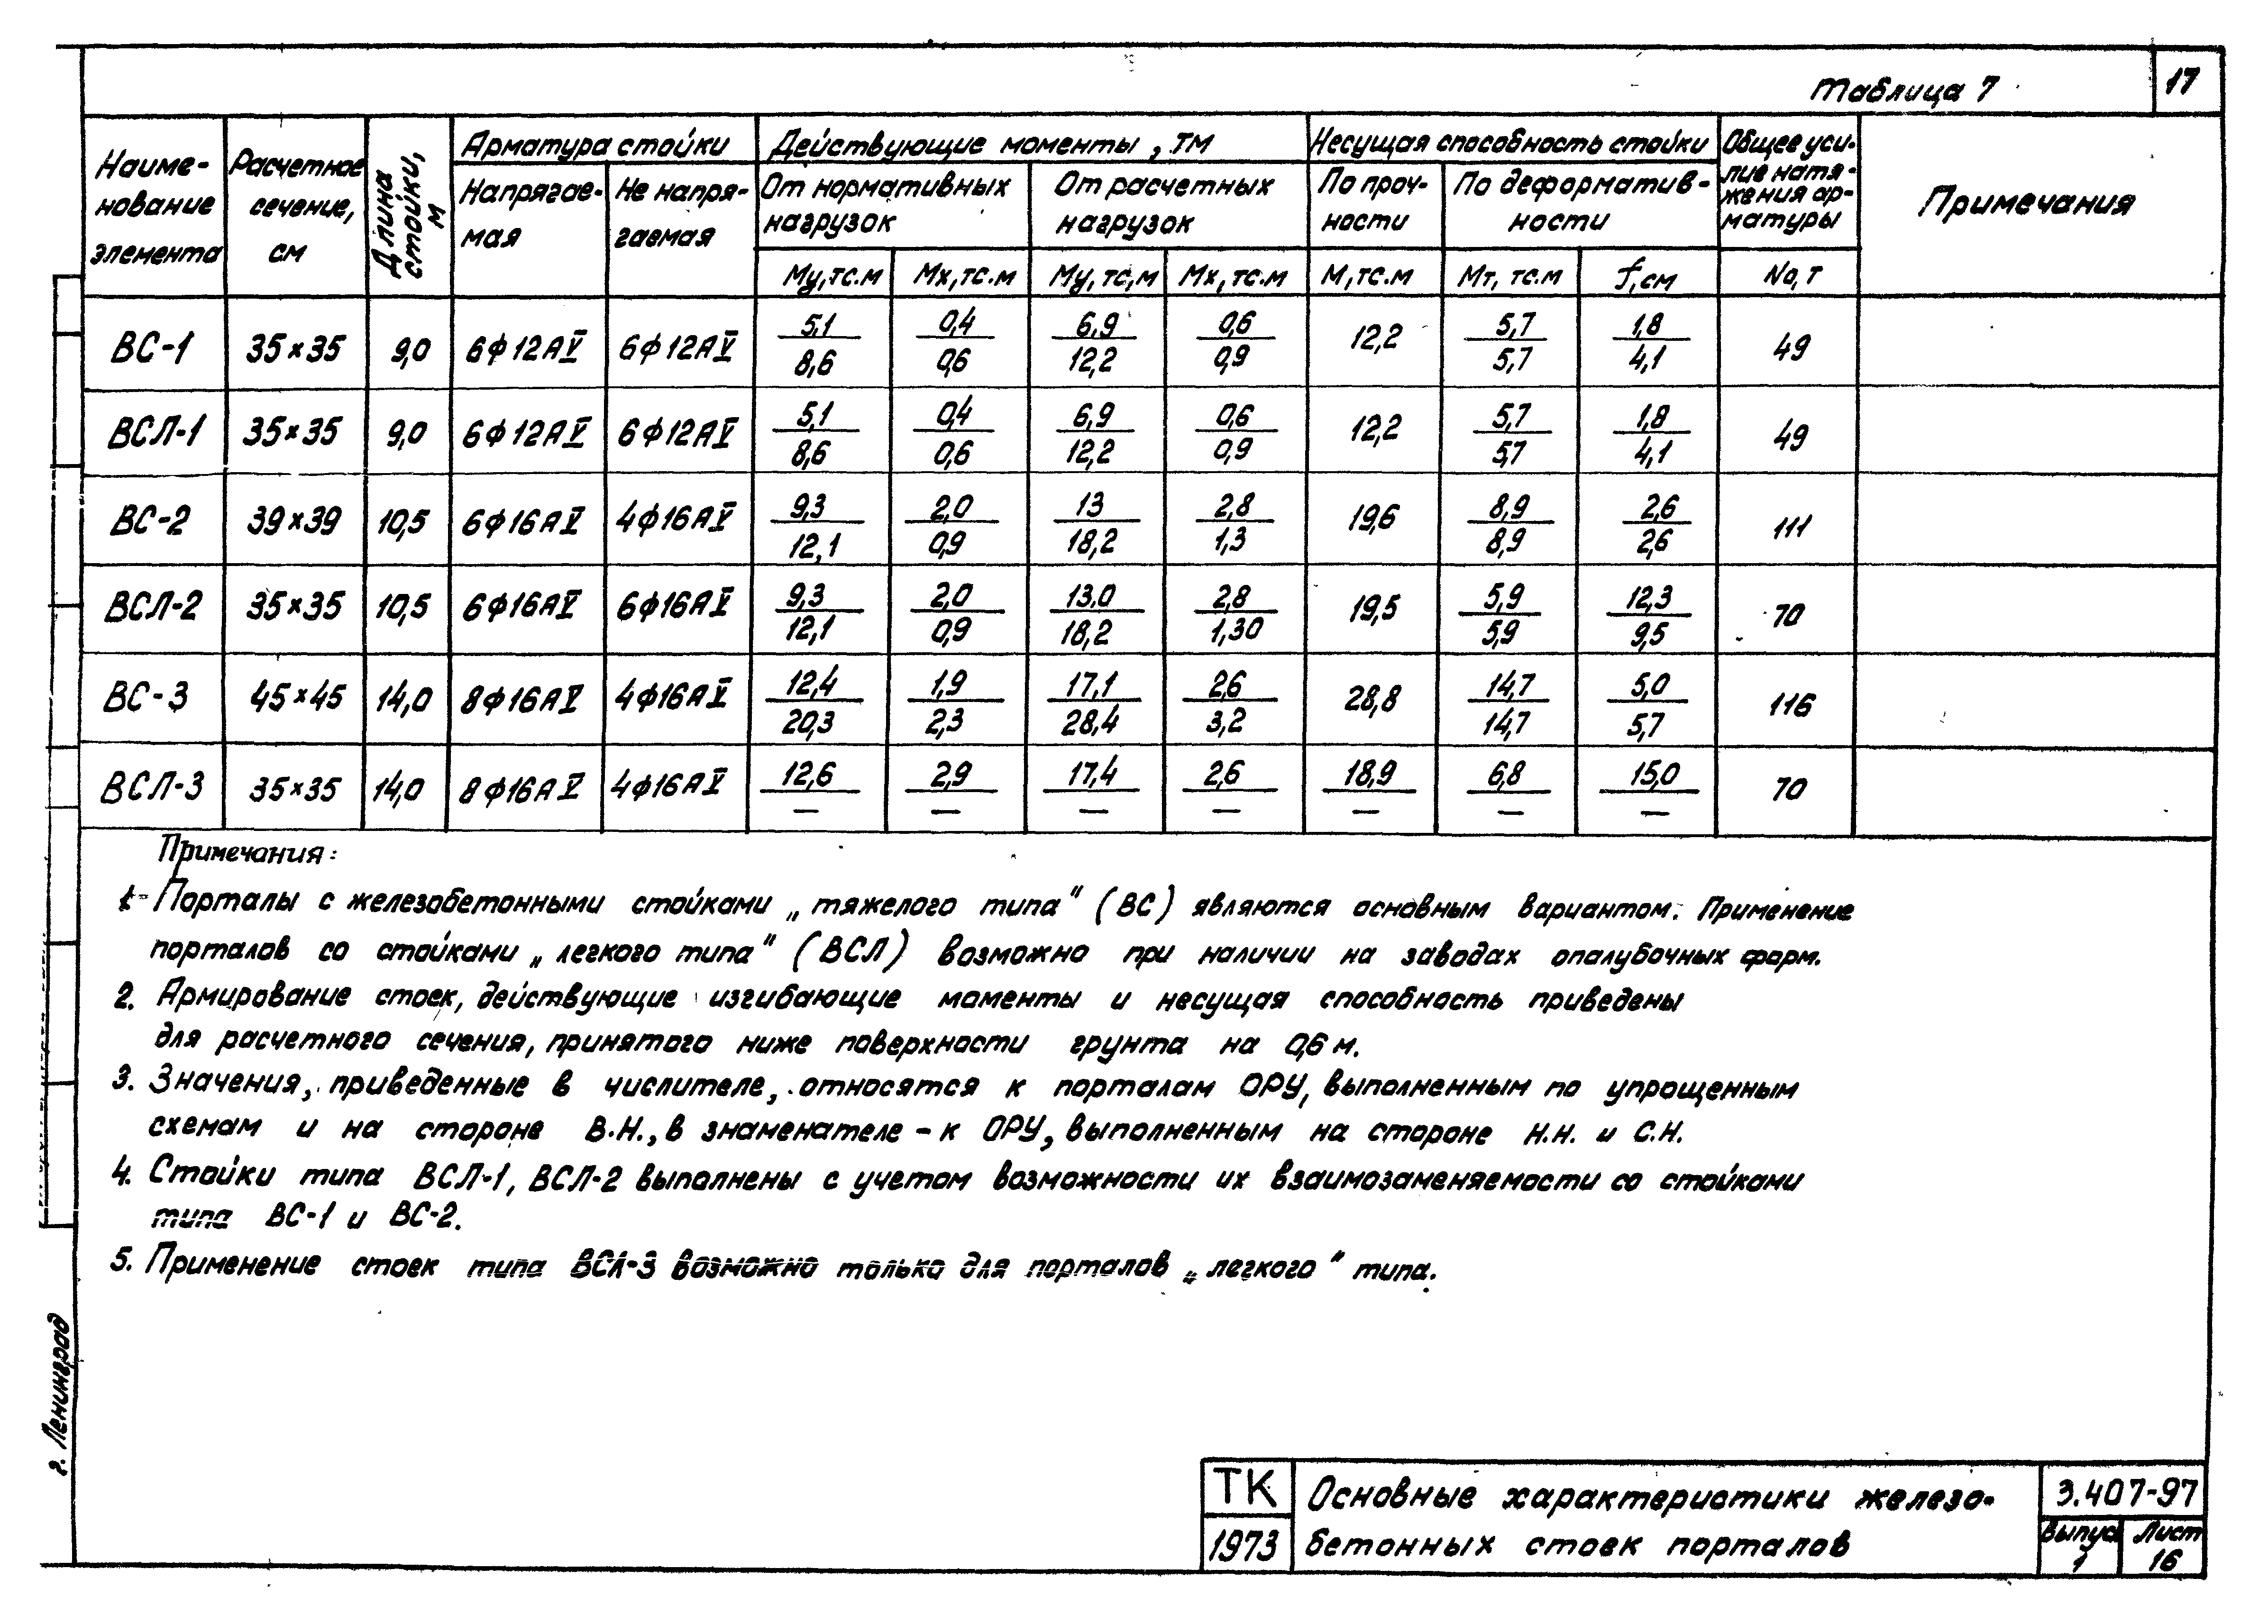 Таблица 7
17
Наиме-
нование
элемента
Расчетное
сечение,
см
Длина
стойки,
м
Арматура стойки
Напрягае-
мая
Не напря-
гаемая
Действующие моменты, тм
От нормативных
нагрузок
От расчетных
нагрузок
Несущая способность стойки
По проч-
ности
По деформатив-
ности
Общее уси-
лие натя-
жения ар-
матуры
Примечания
Му,тс.м Мх,тс.м Му,тс,м Мх,тс.м М,тс.м Мт,тс.м f,см Nа,т
ВС-1 35×35 9,0 6ф12АV 6ф12АV 5,1/8,6 0,4/0,6 6,9/12,2 0,6/0,9 12,2 5,7/5,7 1,8/4,1 49
ВСЛ-1 35×35 9,0 6ф12АV 6ф12АV 5,1/8,6 0,4/0,6 6,9/12,2 0,6/0,9 12,2 5,7/5,7 1,8/4,1 49
ВС-2 39×39 10,5 6ф16АV 4ф16АV 9,3/12,1 2,0/0,9 13/18,2 2,8/1,3 19,6 8,9/8,9 2,6/2,6 111
ВСЛ-2 35×35 10,5 6ф16АV 6ф16АV 9,3/12,1 2,0/0,9 13.0/18,2 2,8/1,30 19,5 5,9/5,9 12,3/9,5 70
ВС-3 45×45 14,0 8ф16АV 4ф16АV 12,4/20,3 1,9/2,3 17,1/28,4 2,6/3,2 28,8 14,7/14,7 5,0/5,7 116
ВСЛ-3 35×35 14,0 8ф16АV 4ф16АV 12,6/— 2,9/— 17,4/— 2,6/— 18,9/— 6,8/— 15,0/— 70
Примечания:
1. Порталы с железобетонными стойками „тяжелого типа" (ВС) являются основным вариантом. Применение
порталов со стойками „легкого типа" (ВСЛ) возможно при наличии на заводах опалубочных форм.
2. Армирование стоек, действующие изгибающие моменты и несущая способность приведены
для расчетного сечения, принятого ниже поверхности грунта на 0,6 м.
3. Значения, приведенные в числителе, относятся к порталам ОРУ, выполненным по упрощенным
схемам и на стороне В.Н., в знаменателе - к ОРУ, выполненным на стороне Н.Н. и С.Н.
4. Стойки типа ВСЛ-1, ВСЛ-2 выполнены с учетом возможности их взаимозаменяемости со стойками
типа ВС-1 и ВС-2.
5. Применение стоек типа ВСЛ-3 возможно только для порталов „легкого" типа.
г. Ленинград
ТК
1973
Основные характеристики железо-
бетонных стоек порталов
3.407-97
Выпуск
1
Лист
16